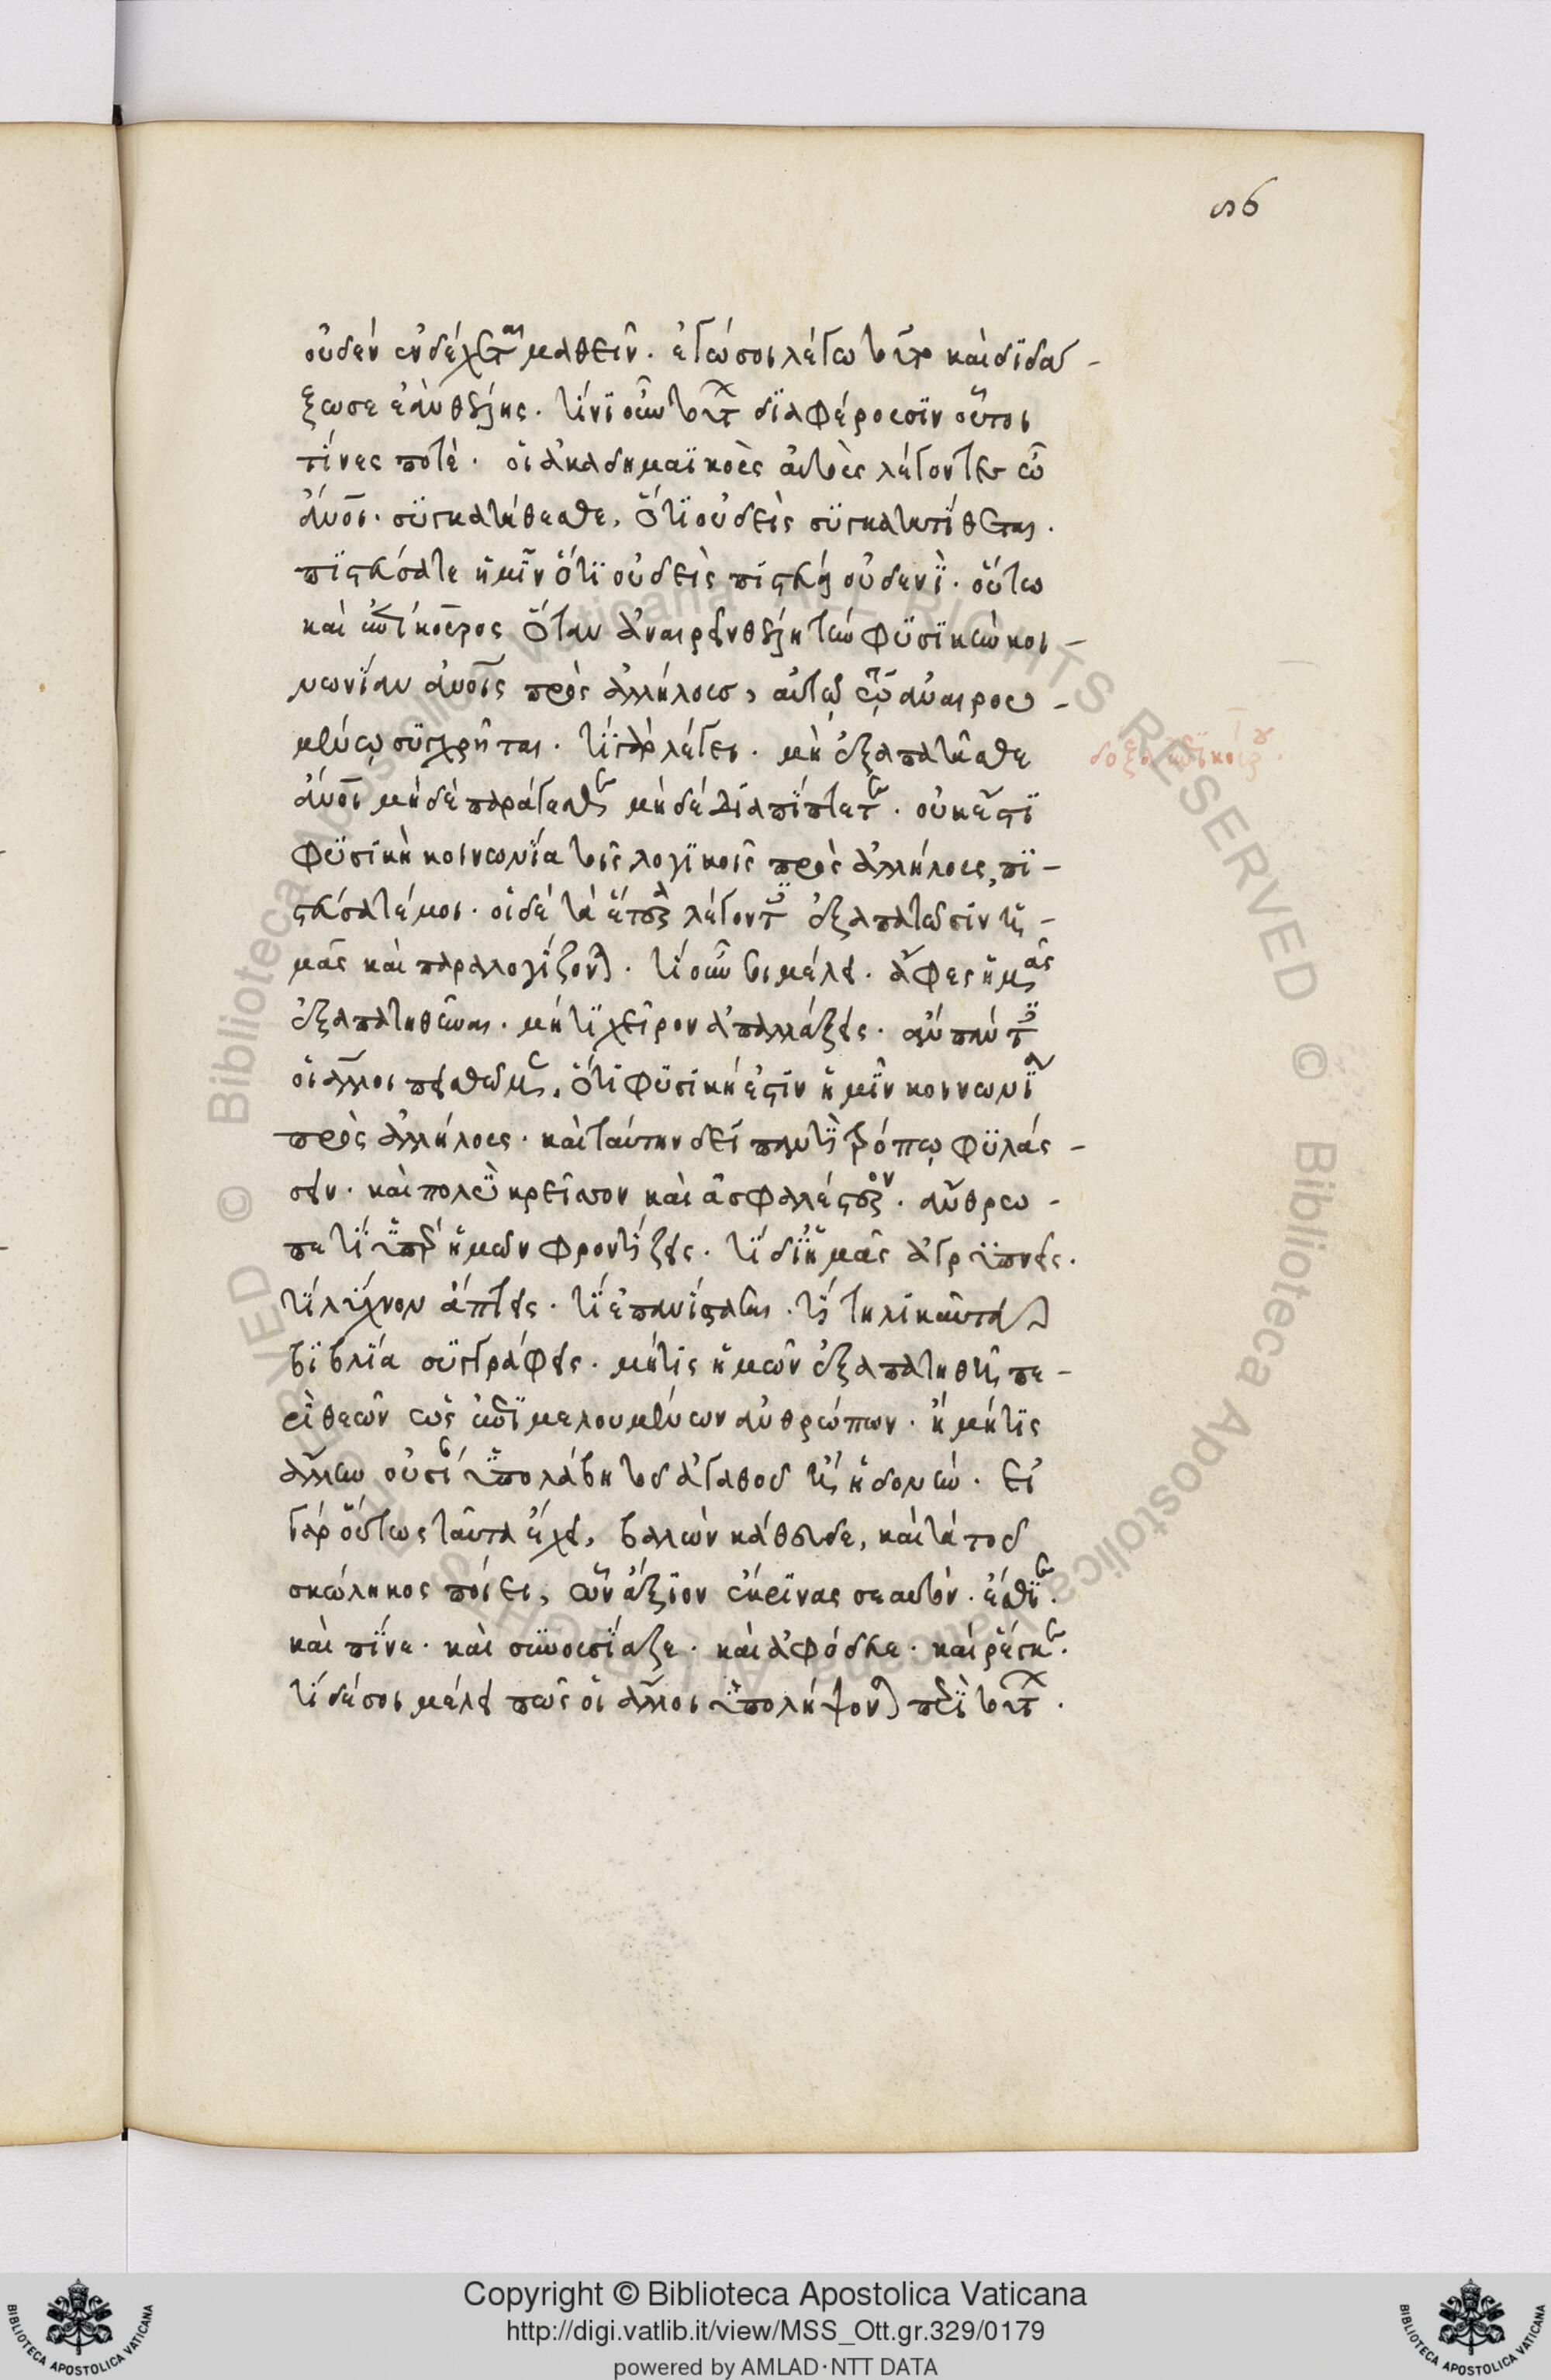 οὐδὲν ἐνδέχεται μαθεῖν· ἐγώ σοι λέγω τοῦτο καὶ διδά-
ξω σε ἐὰν θέλῃς· τίνι οὖν τούτων διαφέρουσιν οὗτοι
τίνες ποτέ· οἱ ἀκαδημαϊκοὺς αὑτοὺς λέγοντες ὦ
ἄνοι· συγκατάθεσθε, ὅτι οὐδεὶς συγκατατίθεται·
πιστεύσατε ἡμῖν ὅτι οὐδεὶς πιστεύει οὐδενί· οὕτω
καὶ ἐπίκουρος ὅταν ἀναιρεῖν θέλῃ τὴν φυσικὴν κοι-
νωνίαν ἀνοις πρὸς ἀλλήλους, αὐτῷ τῷ ἀναιρου-
μένῳ συγχρῆται· τί γὰρ λέγει· μὴ ἐξαπατᾶσθε
ἄνοι μηδὲ παράγεσθε μηδὲ διαπίπτετε· οὐκ ἔστι
φυσικὴ κοινωνία τοῖς λογικοῖς πρὸς ἀλλήλους, πι-
στεύσατέ μοι· οἱ δὲ τὰ ἕτερα λέγοντες ἐξαπατῶσιν ὑ-
μᾶς καὶ παραλογίζονται· τί οὖν σοι μέλει· ἄφες ἡμᾶς
ἐξαπατηθῆναι· μή τι χεῖρον ἀπαλλάξεις· ἂν πάντες
οἱ ἄλλοι πεισθῶμεν, ὅτι φυσική ἐστιν ἡμῖν κοινωνία
πρὸς ἀλλήλους· καὶ ταύτην δεῖ παντὶ τρόπῳ φυλάσ-
σειν· καὶ πολὺ κρεῖσσον καὶ ἀσφαλέστερον· ἄνθρω-
πε τί ὑπὲρ ἡμῶν φροντίζεις· τί δι' ἡμᾶς ἀγρυπνεῖς·
τί λύχνον ἅπτεις· τί ἐπανίστασαι· τί τηλικαῦτα
βιβλία συγγράφεις· μή τις ἡμῶν ἐξαπατηθῇ πε-
ρὶ θεῶν ὡς ἐπιμελουμένων ἀνθρώπων· ἢ μή τις
ἄλλην οὐσίαν ὑπολάβη τοῦ ἀγαθοῦ ἢ ἡδονήν· εἰ
γὰρ οὕτως ταῦτα ἔχει, βαλὼν κάθευδε, καὶ τὰ τοῦ
σκώληκος ποίει, ὧν ἄξιον ἔκρινας σεαυτόν· ἔσθιε·
καὶ πῖνε· καὶ συνουσίαζε· καὶ ἀφόδευε· καὶ ῥέγκε·
τί δέ σοι μέλει πῶς οἱ ἄλλοι ὑπολήψονται περὶ τούτων·
Copyright © Biblioteca Apostolica Vaticana
http://digi.vatlib.it/view/MSS_Ott.gr.329/0179
powered by AMLAD·NTT DATA
BIBLIOTECA APOSTOLICA VATICANA
BIBLIOTECA APOSTOLICA VATICANA